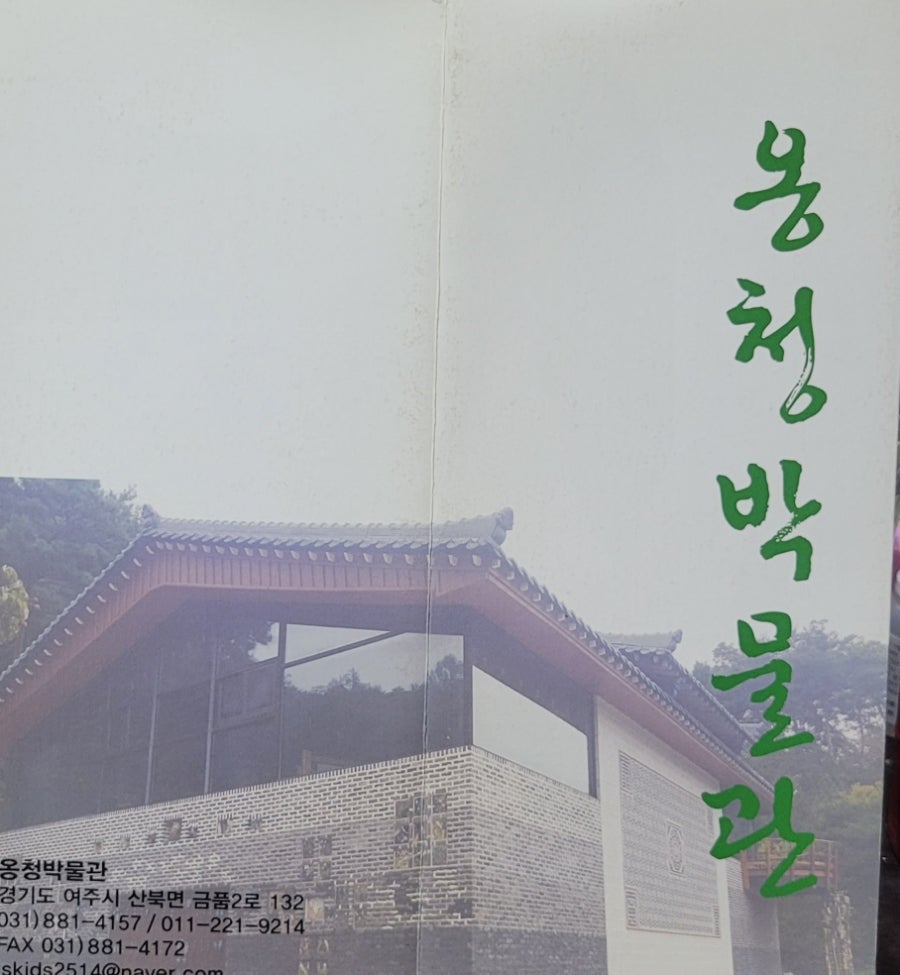 옹청박물관
옹청박물관
경기도 여주시 산북면 금품2로 132
031)881-4157 / 011-221-9214
FAX 031)881-4172
skids2514@naver.com